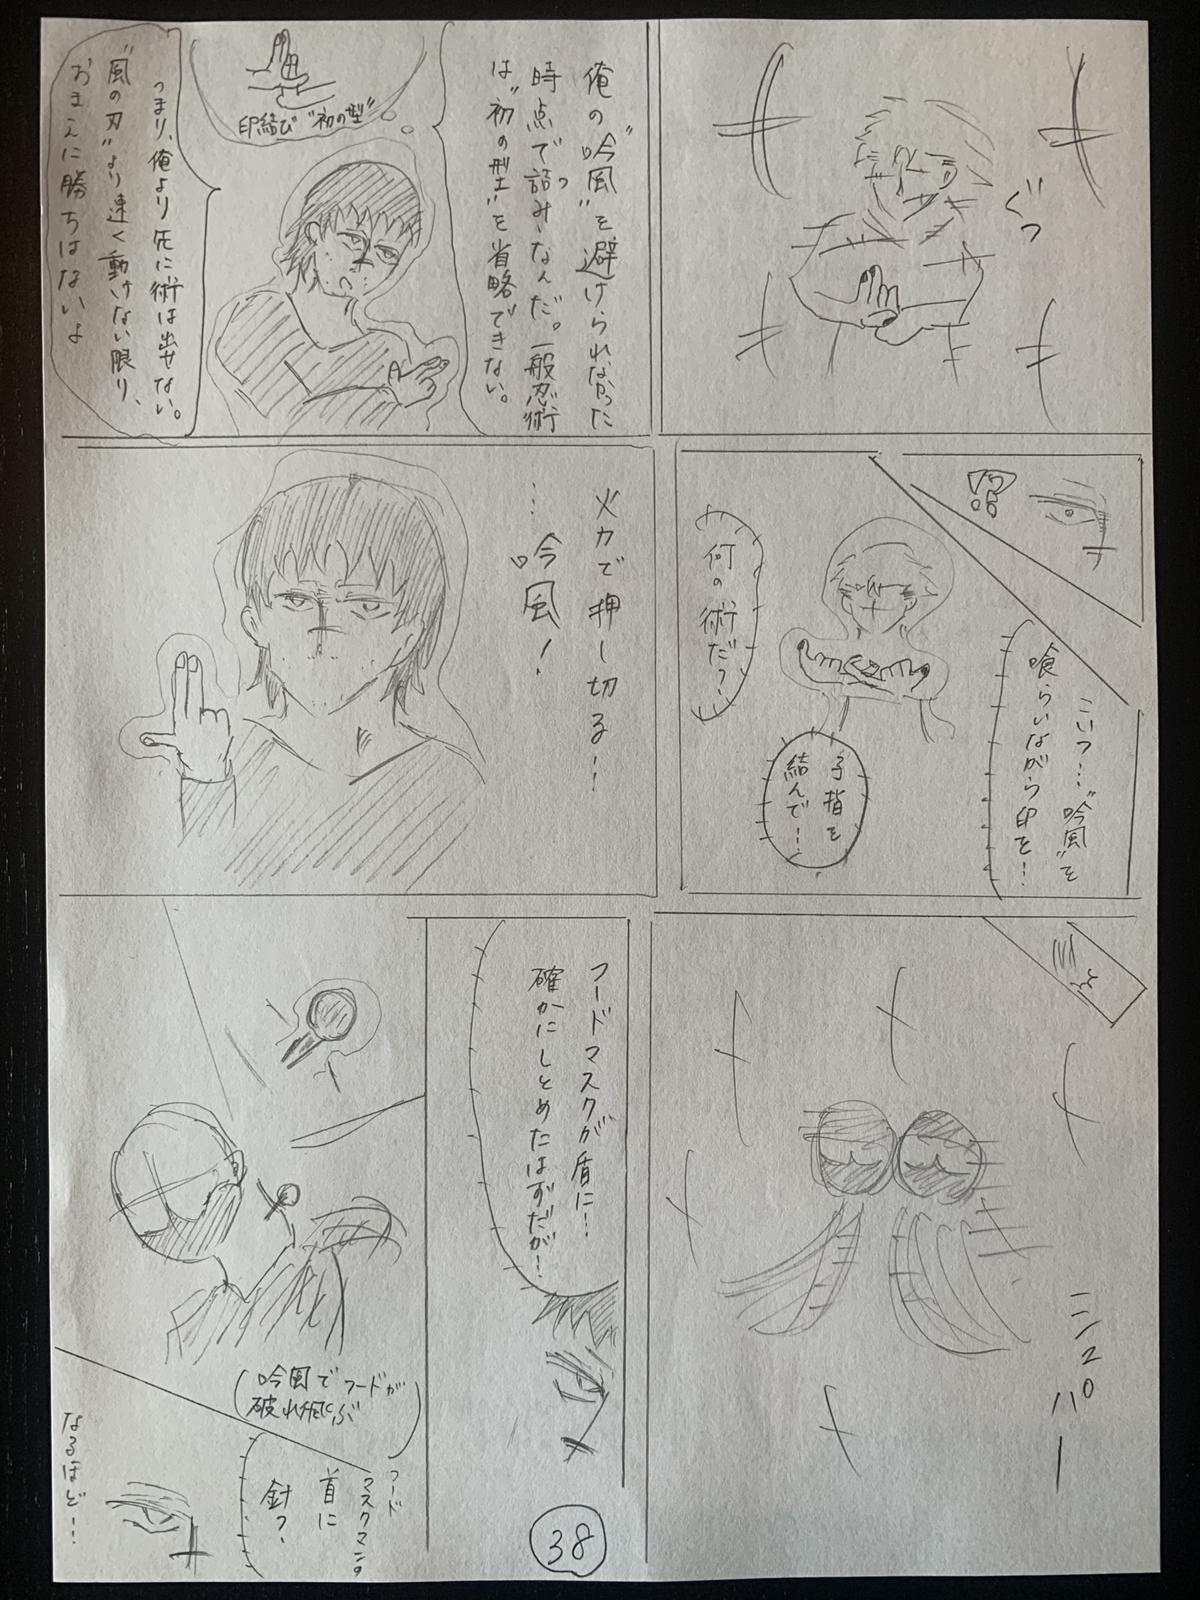 ぐっ
俺の“吟風”を避けられなかった
時点で詰みなんだ。一般忍術
は“初の型”を省略できない。
印結び“初の型”
つまり、俺より先に術は出せない。
“風の刃”より速く動けない限り、
おまえに勝ちはないよ
!?
こいつ…“吟風”を
喰らいながら印を…!
何の術だっ!
子指を
結んで…!
火力で押し切る…!
…吟風!
ミン2
フードマスクが盾に…!
確かにしとめたはずだが…!
(吟風でフードが
破れ飛ぶ)
フード
マスクマンの
首に
針?
なるほど…!
38